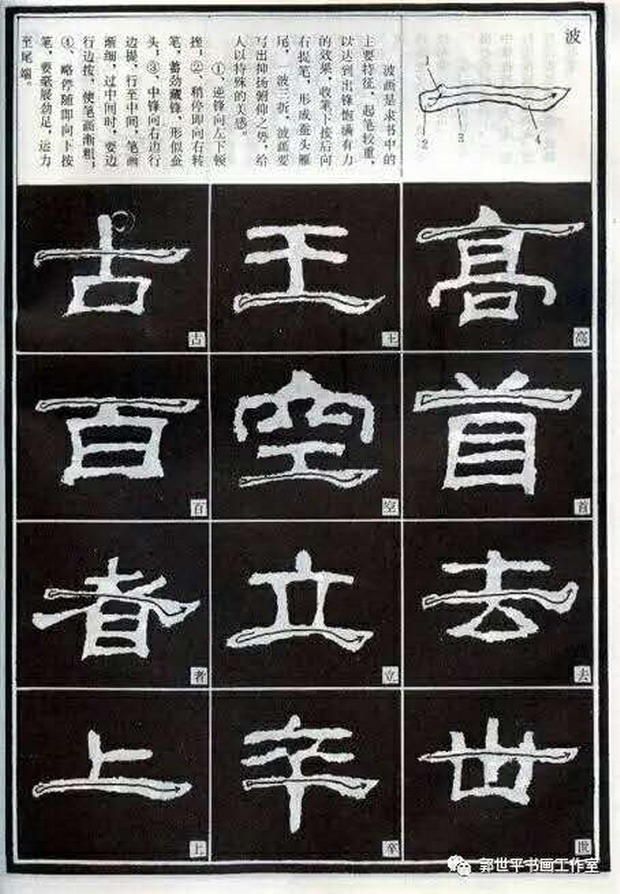 波
1
2
3
4
波画是隶书中的
主要特征，起笔较重，
以达到出锋饱满有力
的效果，收笔下按后向
右提笔，形成蚕头雁
尾，一波三折，波画要
写出抑扬俯仰之势，给
人以特殊的美感。
①、逆锋向左下顿
挫；②、稍停即向右转
笔，蓄劲藏锋，形似蚕
头；③、中锋向右边行
边提，行至中间，笔画
渐细，过中间时，要边
行边按，使笔画渐粗；
④、略停随即向下按
笔，要毫展劲足，运力
至尾端。
高
高
首
首
去
去
世
世
王
王
空
空
立
立
卒
卒
古
古
百
百
者
者
上
上
郭世平书画工作室